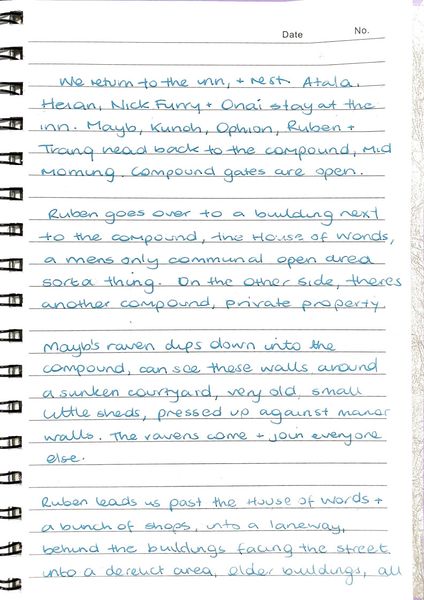 Date No.
We return to the inn, + rest. Atala.
Heian, Nick Furry + Onai stay at the
inn. Mayb, Kunoh, Ophion, Ruben +
Trang head back to the compound, mid
morning. Compound gates are open.
Ruben goes over to a building next
to the compound, the House of Words,
a mens only communal open area
sorta thing. On the other side, theres
another compound, private property
Mayb's raven dips down into the
compound, can see these walls around
a sunken courtyard, very old, small
little sheds, pressed up against manor
walls. The ravens come + join everyone
else.
Ruben leads us past the House of Words +
a bunch of shops, into a laneway,
behind the buildings facing the street
into a derelict area, elder buildings, all